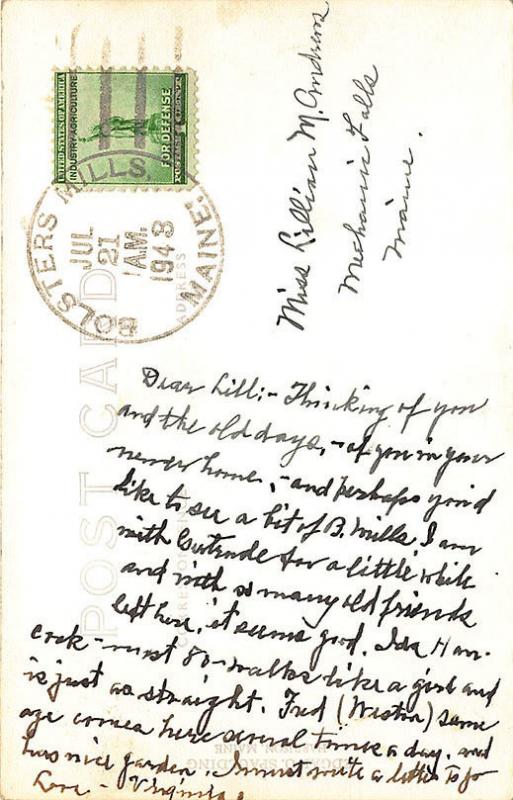 UNITED STATES OF AMERICA
INDUSTRY AGRICULTURE
FOR DEFENSE
BOLSTERS MILLS, MAINE.
JUL
21
AM.
1943
Miss Lillian M. Andrews
Mechanic Falls
Maine.
POST CARD
ADDRESS
Dear Lill:- Thinking of you
and the old days, - of you in your
newer home, - and perhaps you'd
like to see a bit of B. Mills. I am
with Gertrude for a little while
and with so many old friends
left here, it seems good. Ida Han-
cock - most 80 - walks like a girl and
is just as straight. Fred (Weston) same
age comes here several times a day, and
has nice garden. I must write a letter to
Love - Virginia.